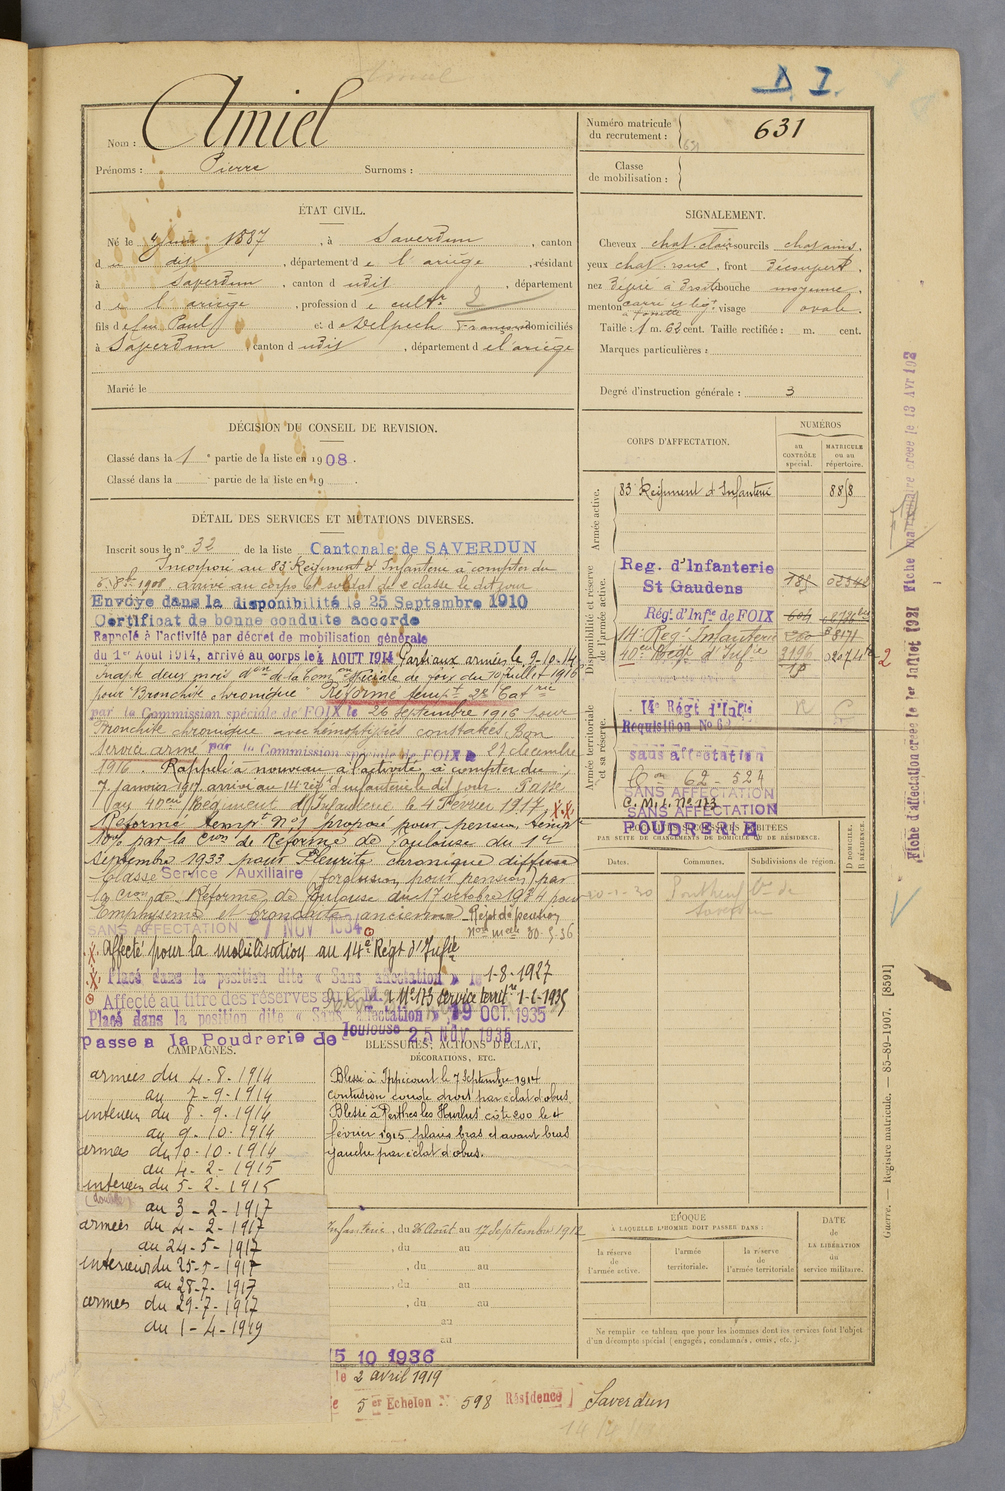 D. I.
Nom : Amiel
Prénoms : Pierre Surnoms :
Numéro matricule
du recrutement : 631
Classe
de mobilisation :
ÉTAT CIVIL.
Né le 1887, à Saverdun, canton
du dit, département de l'ariège, résidant
à Saverdun, canton d udit, département
de l'ariège, profession de cultr 2
fils de feu Paul et de Delpech domiciliés
à Saverdun, canton d udit, département de l'ariège
Marié le
SIGNALEMENT.
Cheveux chat. clair sourcils chatains,
yeux chat. roux, front découvert,
nez à droite bouche moyenne,
menton carré et visage ovale.
Taille : 1 m. 62 cent. Taille rectifiée : m. cent.
Marques particulières :
Degré d'instruction générale : 3
DÉCISION DU CONSEIL DE REVISION.
Classé dans la 1e partie de la liste en 1908.
Classé dans la partie de la liste en 19 .
DÉTAIL DES SERVICES ET MUTATIONS DIVERSES.
Inscrit sous le n° 32 de la liste Cantonale de SAVERDUN
Incorporé au 83e Régiment d'Infanterie à compter du
1908. arrivé au corps et soldat de 2e classe le dit jour
Envoyé dans la disponibilité le 25 Septembre 1910
Certificat de bonne conduite accordé
Rappelé à l'activité par décret de mobilisation générale
du 1er Aout 1914, arrivé au corps le 4 AOUT 1914 Parti aux armées le 9-10-14
Inapte deux mois don de la Comon spéciale de Foix du 10 Juillet 1916
pour "Bronchite chronique" Réformé tempt 2e Catrie
par la Commission spéciale de FOIX le 26 Septembre 1916 pour
Bronchite chronique avec hémoptysies constatées. Bon
service armé par la Commission spéciale de FOIX le 22 décembre
1916. Rappelé à nouveau à l'activité à compter du
7 Janvier 1917, arrivé au 14e rég. d'infanterie le dit jour. Passé
au 40eme Régiment d'Infanterie le 4 Février 1917.
Réformé tempt N°1 proposé pour pension tempre
10% par la Cion de Réforme de Toulouse du 1er
Septembre 1933 pour Pleurite chronique diffuse
Classé Service Auxiliaire (forclusion pour pension) par
la Cion de Réforme de Toulouse du 17 octobre 1934 pour
Emphysème et bronchite ancienne Rejet de pension
SANS AFFECTATION 7 NOV 1934
Affecté pour la mobilisation au 14e Régt d'Infrie
Placé dans la position dite « Sans affectation » le 1-8-1927
Affecté au titre des réserves au C. M. I. N° 173 service territre 1-1-1935
Placé dans la position dite « Sans affectation » 19 OCT. 1935
passe a la Poudrerie de Toulouse 25 NOV 1935
CORPS D'AFFECTATION.
NUMÉROS
au
CONTRÔLE
spécial.
MATRICULE
ou au
répertoire.
Armée active.
83e Régiment d'Infanterie 8858
Disponibilité et réserve
de l'armée active.
Reg. d'Infanterie
St Gaudens
Régt d'Infie de FOIX
14e Reg. Infanterie 8171
40eme Régt d'Infie 3196
Armée territoriale
et sa réserve.
14e Régt d'Infie
Requisition No 62
sans affectation
62-524
SANS AFFECTATION
C. M. I. N° 173
SANS AFFECTATION
POUDRERIE
PAR SUITE DE CHANGEMENTS DE DOMICILE OU DE RÉSIDENCE.
Dates. Communes. Subdivisions de région. D DOMICILE. R RÉSIDENCE.
Saverdun
CAMPAGNES.
armées du 4-8-1914
au 7-9-1914
intérieur du 8-9-1914
au 9-10-1914
armées du 10-10-1914
au 4-2-1915
intérieur du 5-2-1915
(double)
au 3-2-1917
armées du 4-2-1917
au 24-5-1917
intérieur du 25-5-1917
au 28-7-1917
armées du 29-7-1917
au 1-4-1919
BLESSURES, ACTIONS D'ÉCLAT,
DÉCORATIONS, ETC.
Blessé à Ippécourt le 7 Septembre 1914
contusion coude droit par éclat d'obus.
Blessé à Perthes les Hurlus côte 200 le 4
février 1915 plaies bras et avant bras
gauche par éclat d'obus.
Infanterie, du 26 Août au 17 Septembre 1912
, du au
, du au
, du au
au
au
ÉPOQUE
À LAQUELLE L'HOMME DOIT PASSER DANS :
la réserve
de
l'armée active.
l'armée
territoriale.
la réserve
de
l'armée territoriale
DATE
de
LA LIBÉRATION
du
service militaire.
Ne remplir ce tableau que pour les hommes dont les services font l'objet
d'un décompte spécial (engagés, condamnés, omis, etc.).
5 10 1936
le 2 avril 1919
5er Echelon N° 598 Résidence Saverdun
Fiche d'affectation créée le 1er Juillet 1921 Fiche matriculaire créée le 13 Avr 193
Guerre. — Registre matricule. — 85-89-1907. [8591]